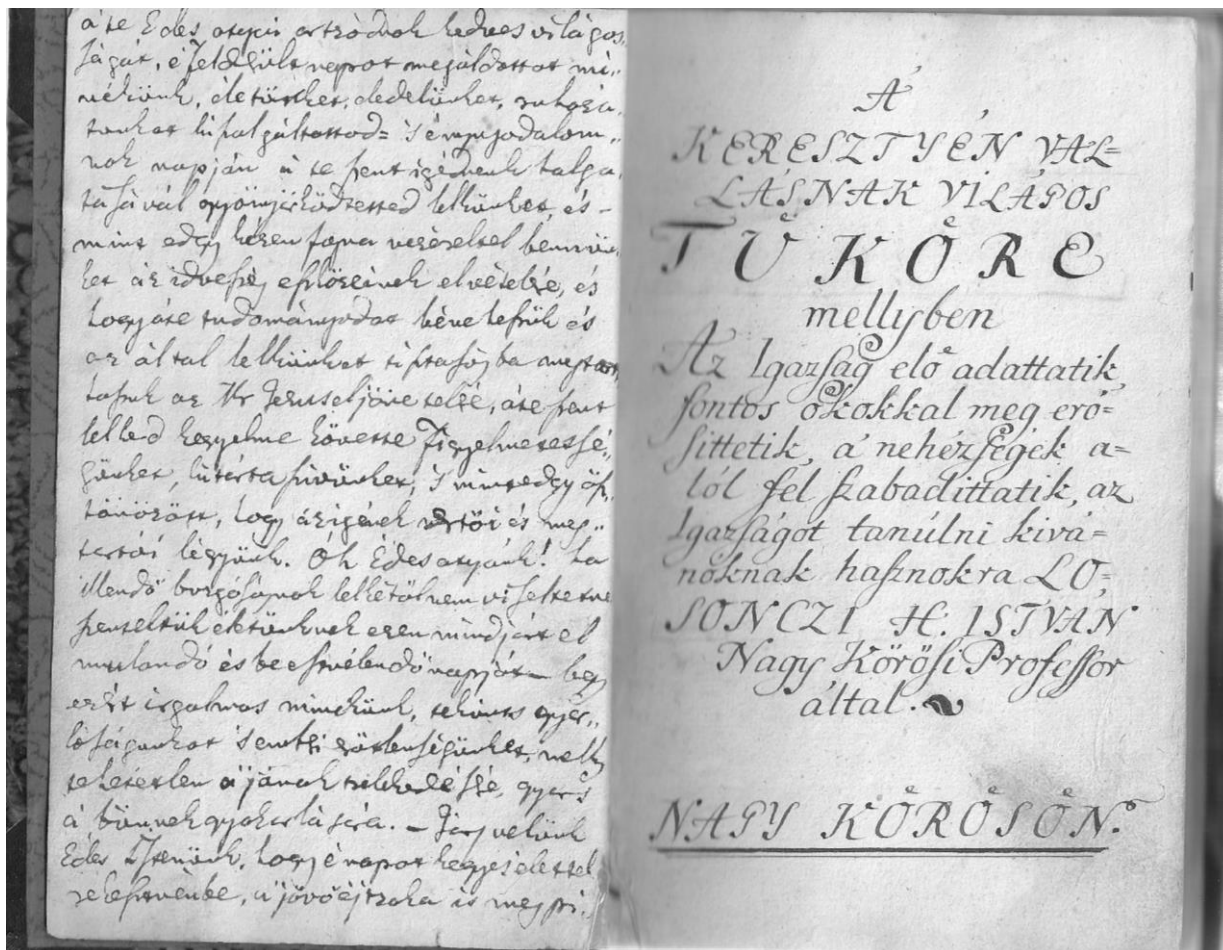 á te Édes atyai ortzádnak kedves világos-
ságát, é feldesült napot megáldottat mi,,
nékünk, életünket, eledelünket, ruháza,
tunkat ki szolgáltattad= 's é nyugodalom,,
nak napján á te szent igédnek halga,
tásával gyönyörködtetted lelkünket, és –
mint edgy kézen fogva vezéreltél bennün,
ket áz idvesség eszközeinek elvételére, és
hogy á te tudományodat bévehessük és
az által lelkünket tisztaságba megtart
hassuk az Ur Jesus eljöveteléré, á te szent
lelked kegyelme kövesse figyelmetessé,,
günket, ki tárta szivünket, 's mint edgy ösz,
tönözött, hogy áz igének értői és meg,,
tartói légyünk. Óh Édes atyánk! ha
illendő buzgóságnak lelkétől nem viseltetve
szenteltük életünknek ezen mindjárt el
mulandó és bé estvéledő napját – légy
ezért irgalmas minékünk, tekints gyar,,
lóságunkat 's
tehetetlen á jónak tselekedésére, gyors
á bűnnek gyakorlására. – Járj velünk
Édes Istenünk, hogy é napot kegyes élettel
rekesztvénbe, á jövő éjtzaka is meg pi,
Á
KERESZTYÉN VAL=
LÁSNAK VILÁGOS
TÜKÖRE
mellyben
Az Igazság elő adattatik,
fontos okokkal meg erő=
sittetik, á nehézségek a=
lól fel szabadittatik, az
Igazságot tanúlni kivá=
nóknak hasznokra LO=
SONCZI H. ISTVÁN
Nagy Kőrösi Professor
által.
NAGY KŐRÖSÖN.